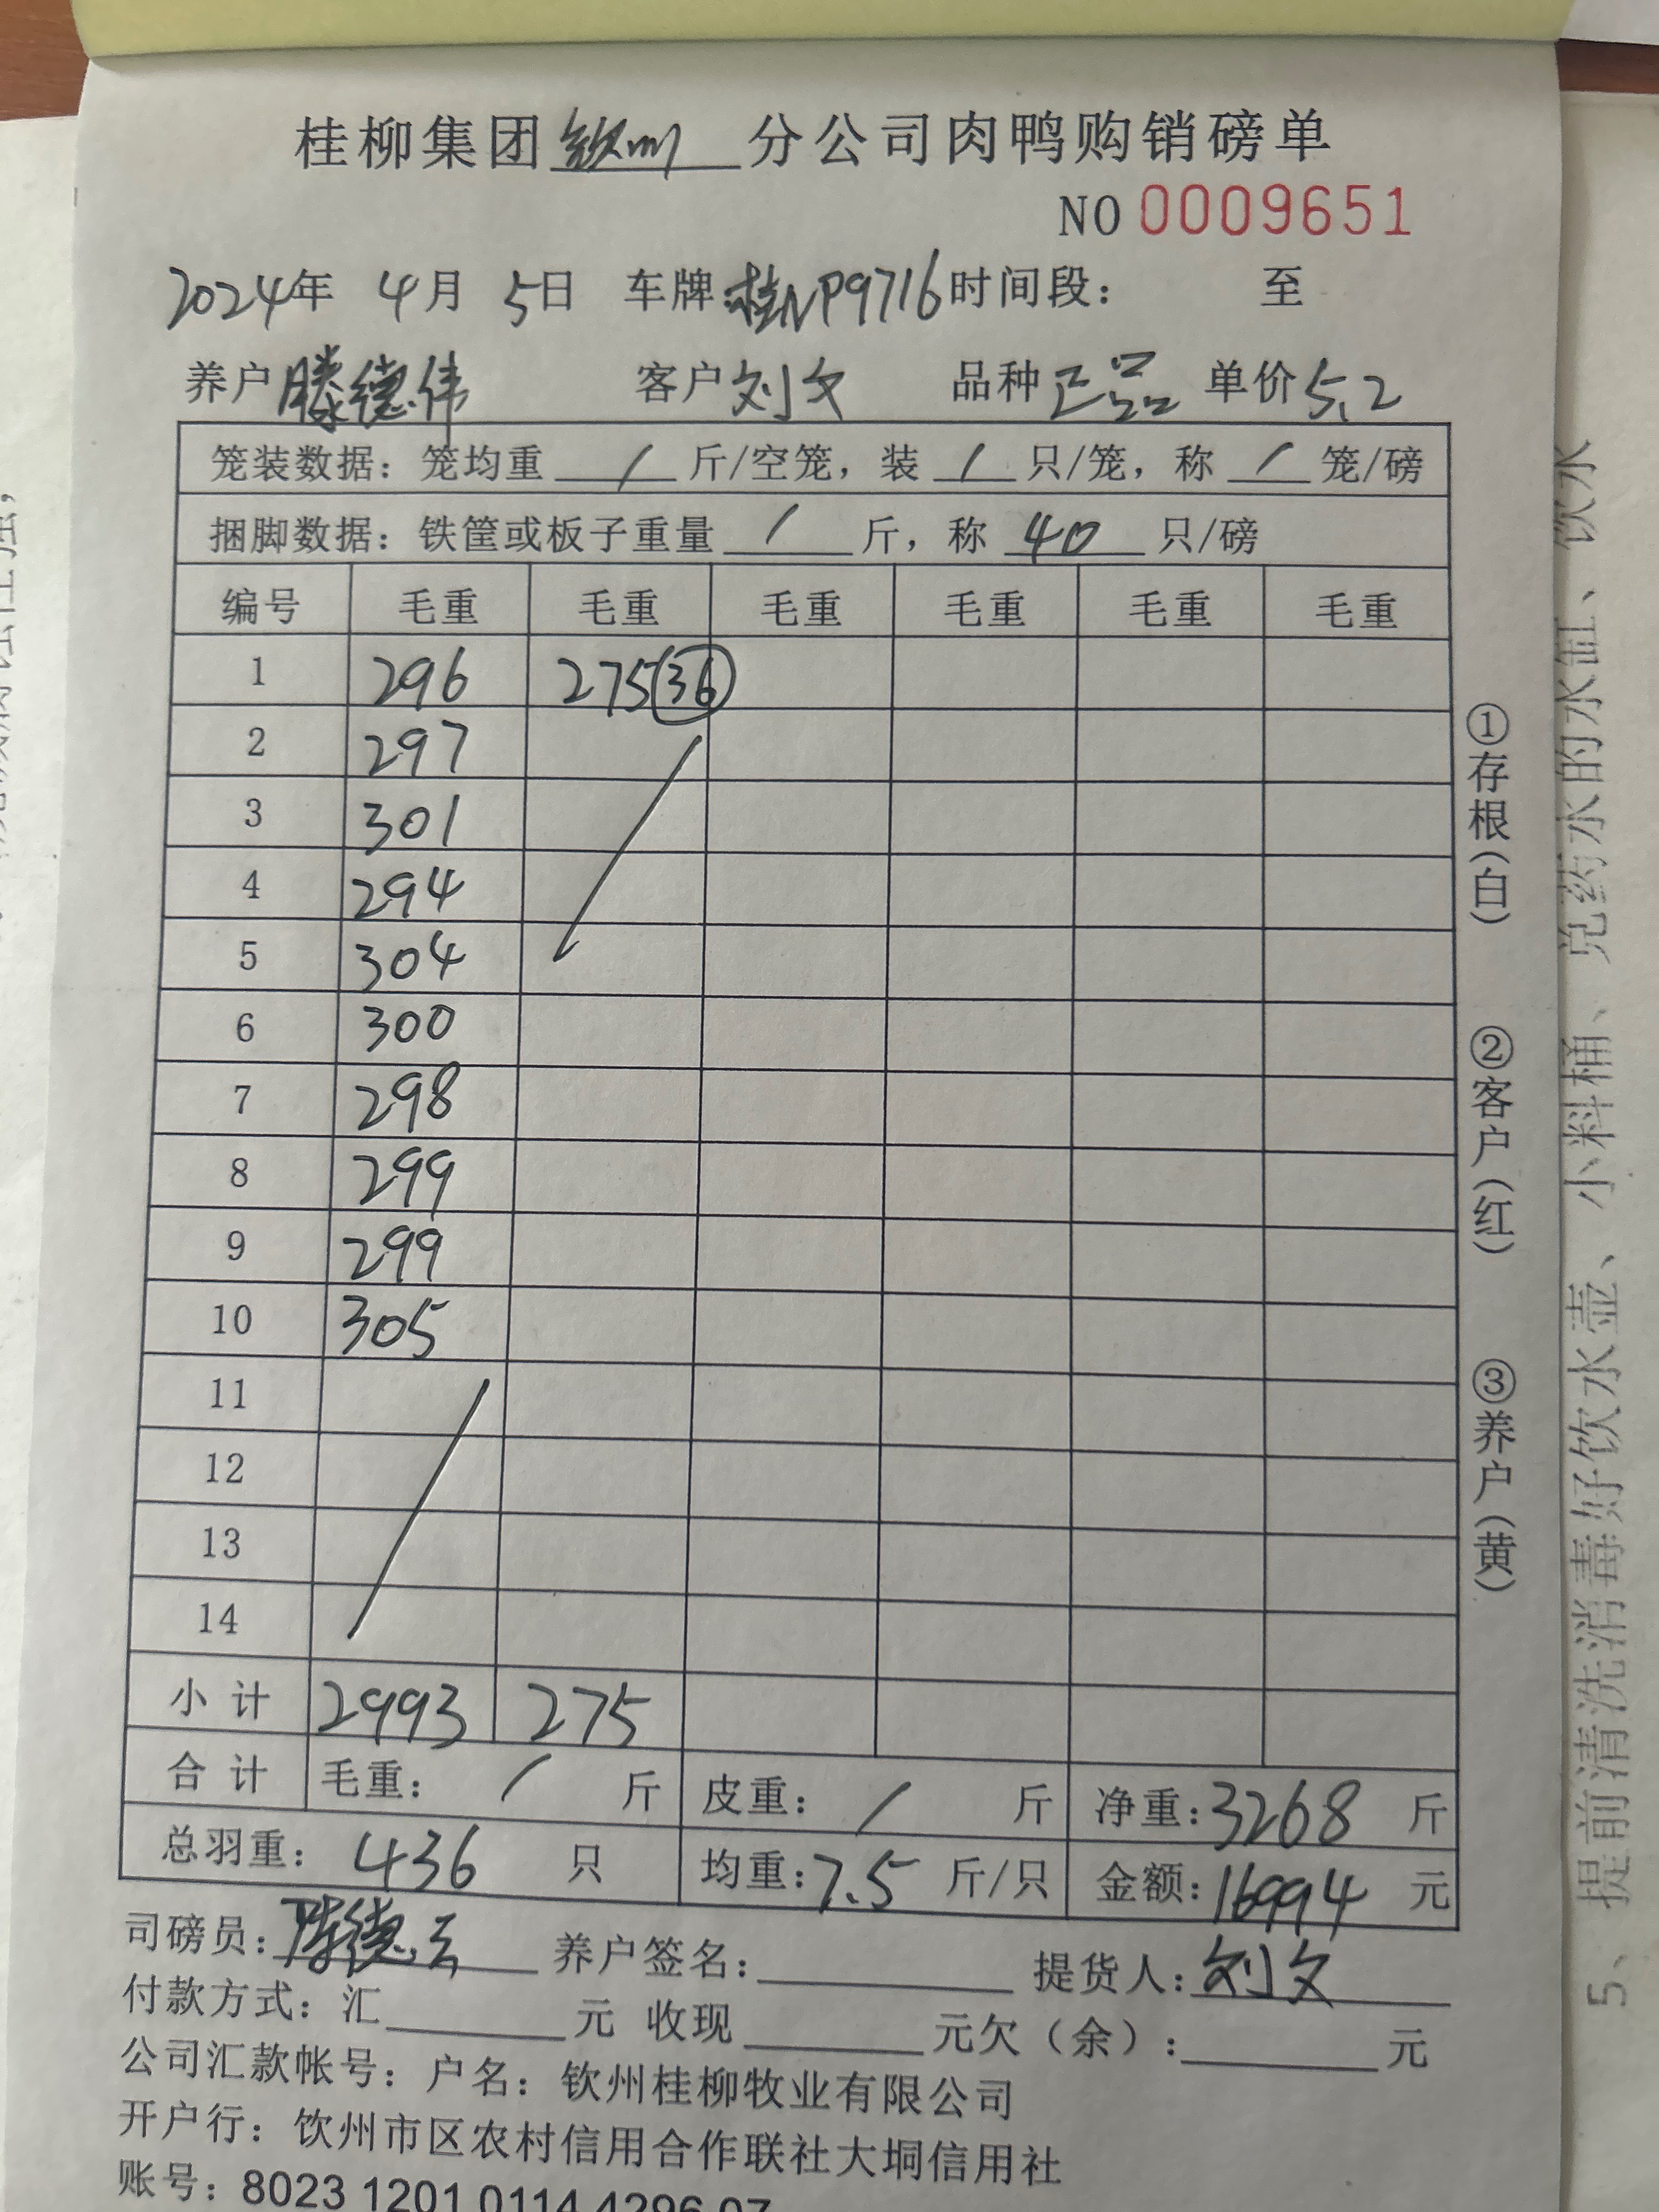 桂柳集团钦州分公司肉鸭购销磅单
NO 0009651
2024年 4月 5日 车牌:桂NP9716 时间段: 至
养户 滕德伟 客户 刘文 品种 正品 单价 5.2
笼装数据:笼均重 / 斤/空笼,装 / 只/笼,称 / 笼/磅
捆脚数据:铁筐或板子重量 / 斤,称 40 只/磅
编号 毛重 毛重 毛重 毛重 毛重 毛重
1 296 275(36)
2 297
3 301
4 294
5 304
6 300
7 298
8 299
9 299
10 305
11
12
13
14
小计 2993 275
合计 毛重: / 斤 皮重: / 斤 净重:3268 斤
总羽重: 436 只 均重:7.5 斤/只 金额:16994 元
司磅员:陈德云 养户签名: 提货人:刘文
付款方式:汇 元 收现 元欠(余): 元
公司汇款帐号:户名:钦州桂柳牧业有限公司
开户行:钦州市区农村信用合作联社大垌信用社
账号:8023 1201 0114 4296 07
①存根(白)
②客户(红)
③养户(黄)
5、提前清洗消毒好饮水壶、小料桶、兑药水的水缸、饮水